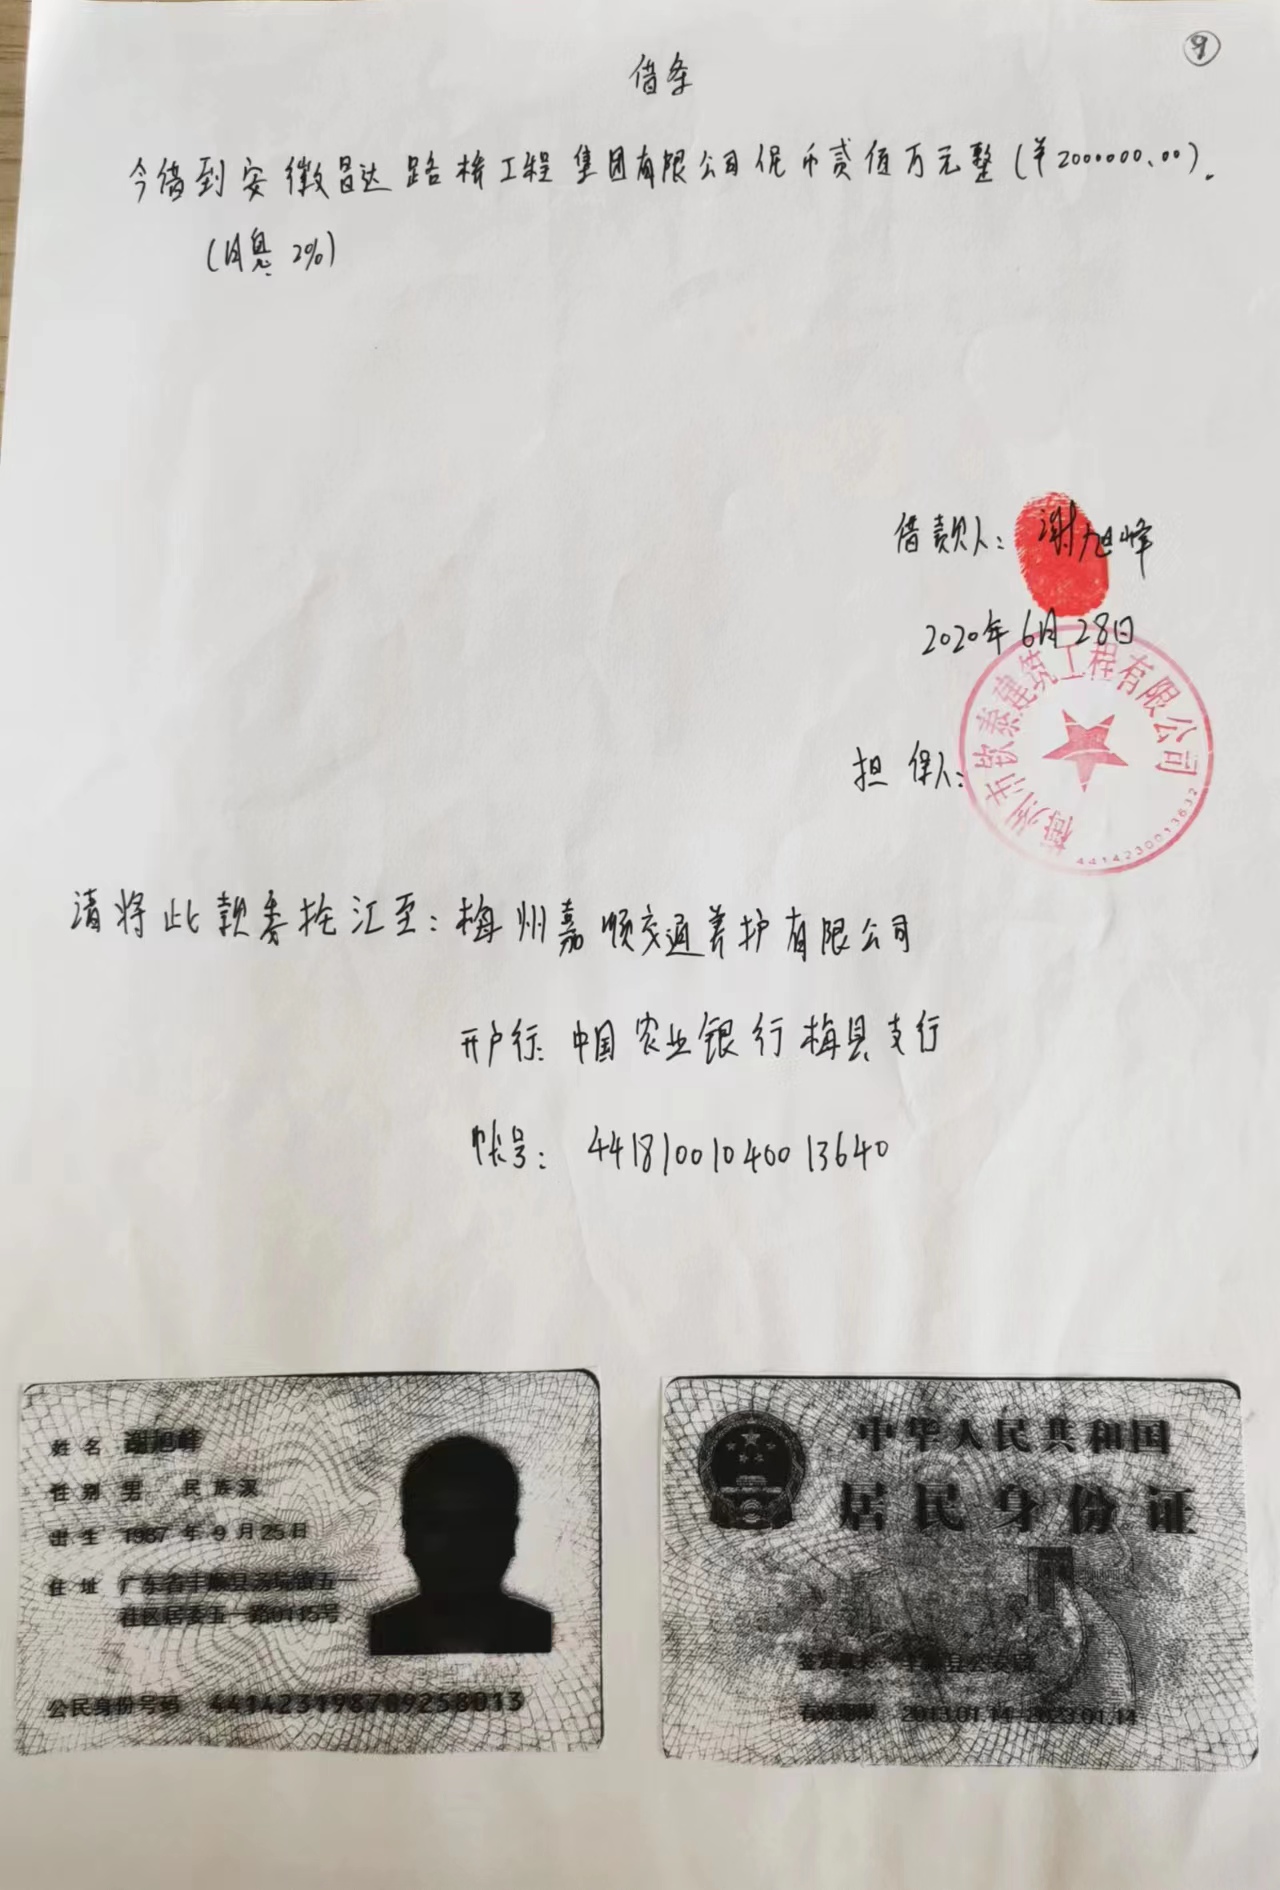 9
借条
今借到安徽昌达路桥工程集团有限公司人民币贰佰万元整(¥2000000.00).
(月息2%)
借款人: 谢旭峰
2020年6月28日
担保人:
梅州市钦泰建筑工程有限公司
4414230013632
请将此款委托汇至: 梅州嘉顺交通养护有限公司
开户行: 中国农业银行梅县支行
帐号: 44181001040013640
姓名 谢旭峰
性别 男 民族 汉
出生 1987年9月25日
住址 广东省丰顺县汤坑镇五
社区居委五一路0115号
公民身份号码 441423198709258013
中华人民共和国
居民身份证
签发机关 丰顺县公安局
有效期限 2013.01.14-2023.01.14